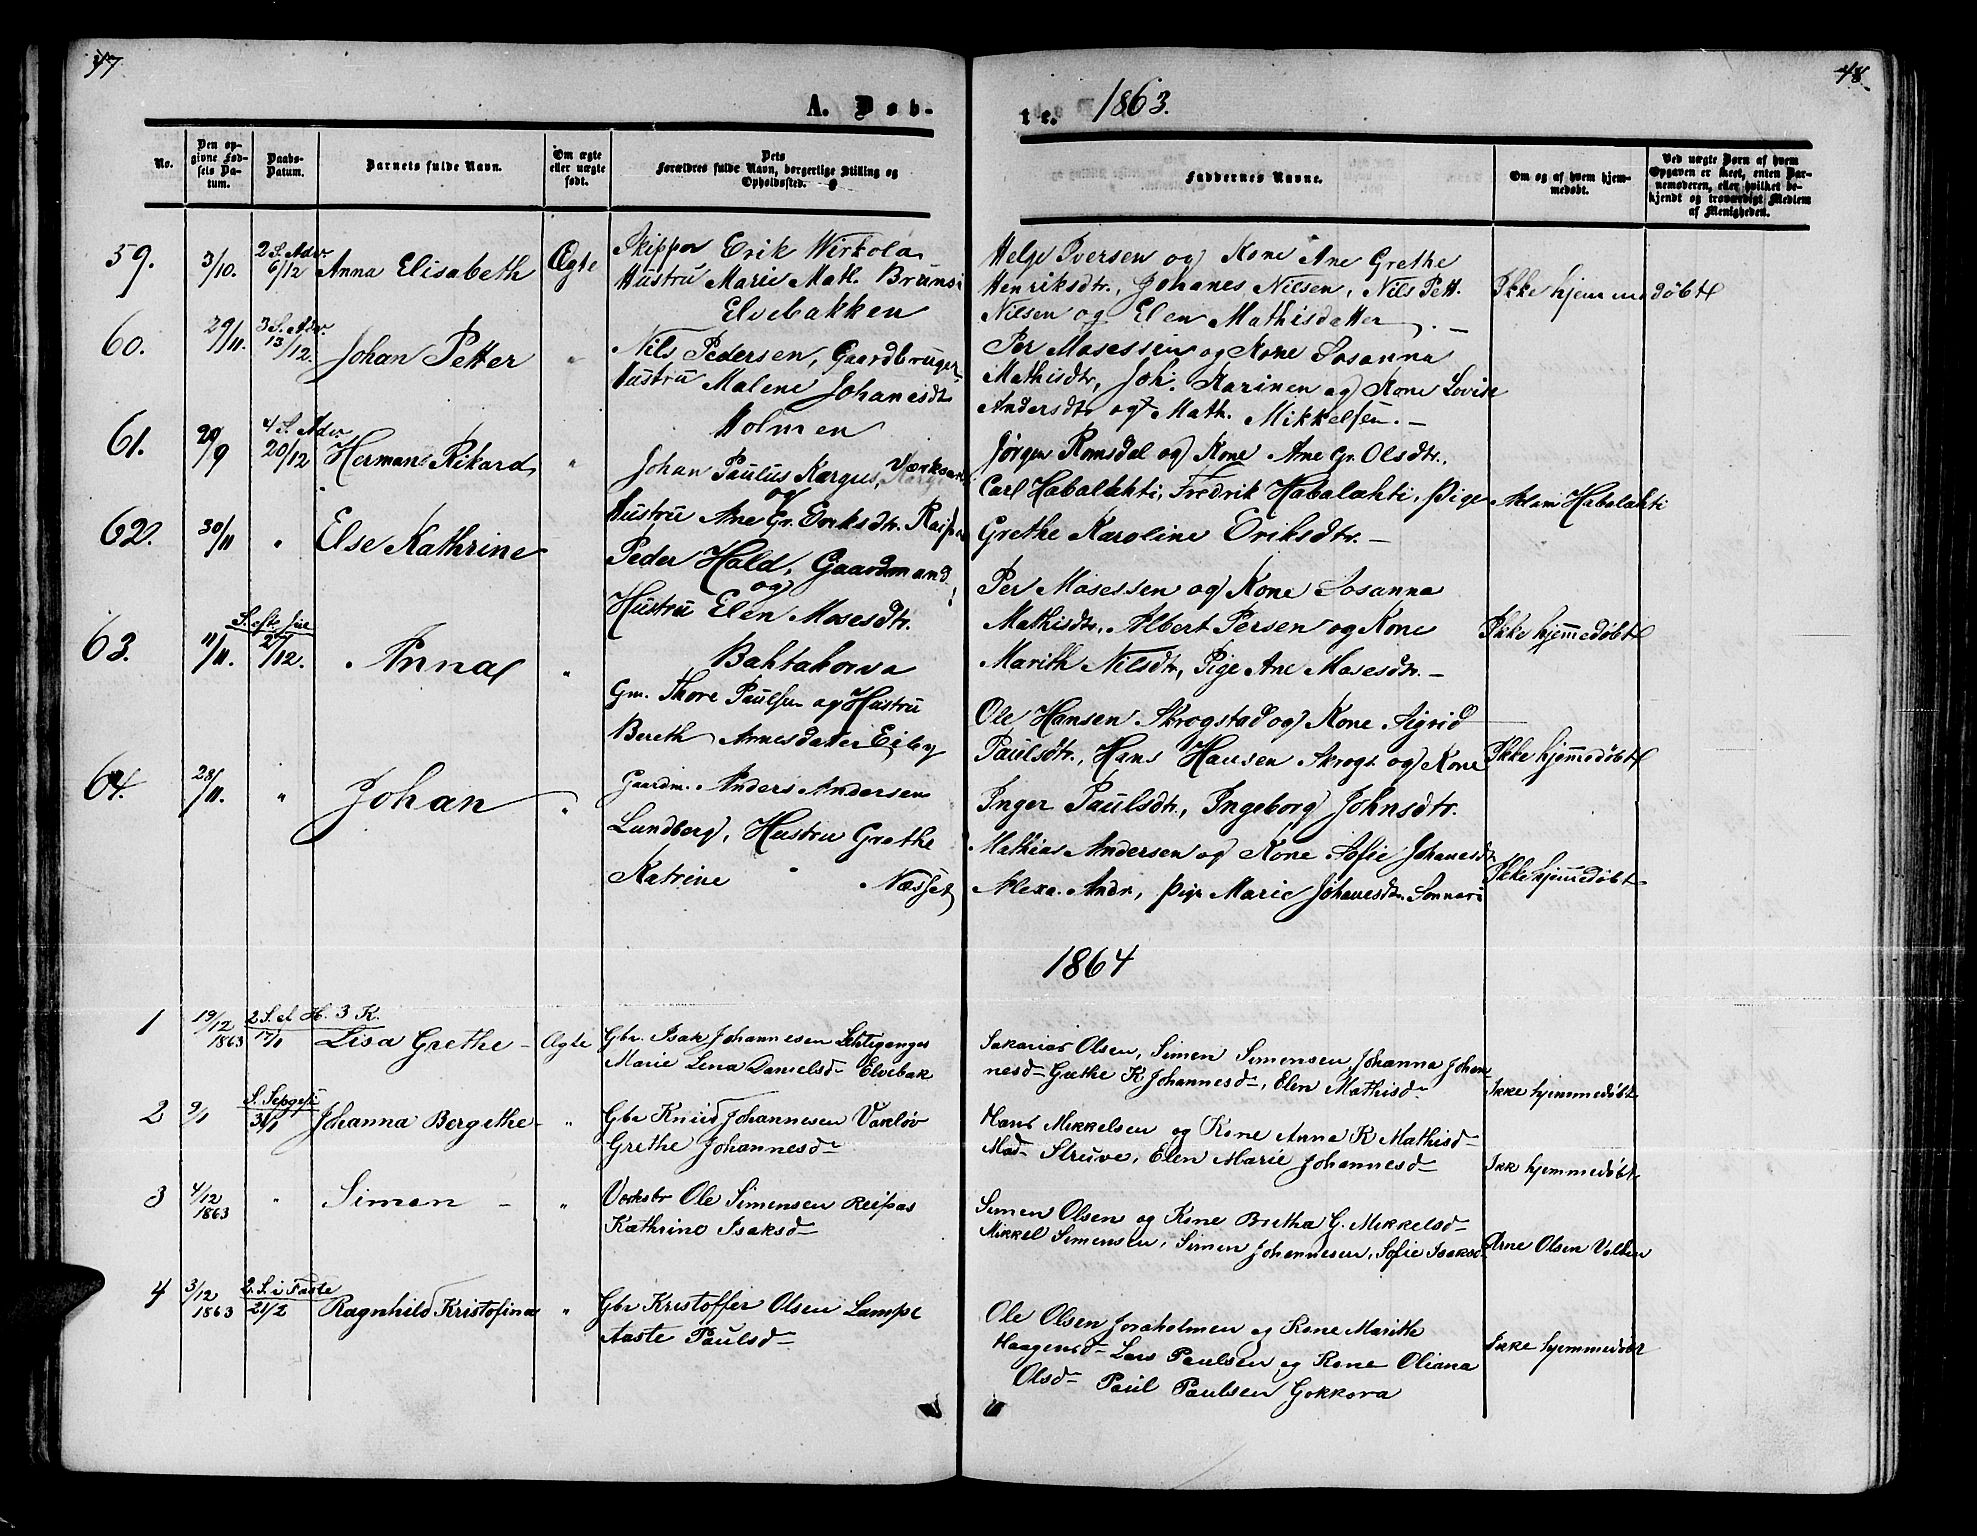 47
48
A. Døb-
te. 1863.
No.
Den opgivne Fødsels Datum.
Daabs-Datum.
Barnets fulde Navn.
Om ægte eller uægte født.
Dets Forældres fulde Navn, borgerlige Stilling og Opholdssted.
Faddernes Navne.
Om og af hvem hjemmedøbt.
Ved uægte Børn af hvem Opgaven er skeet, enten Barnemoderen, eller hvilket bekjendt og troværdigt Medlem af Menigheden.
59. 3/10. 2 S. Adv. 6/12 Anna Elisabeth Ægte
Skipper Erik Wirkola
Hustru Marie Math. Bruns
Elvebakken
Helge Iversen og Kone Ane Grethe
Henriksdtr., Johanes Nilsen, Nils Pett.
Nilsen og Elen Mathisdatter. —
Ikke hjemmedøbt
60. 29/11. 3 S. Adv. 13/12. Johan Petter "
Nils Pedersen, Gaardbruger
Hustru Malene Johanesdtr
Holmen
Per Mosessen og Kone Sosanna
Mathisdtr, Joh. Karinen og Kone Lovise
Andersdtr og Math. Mikkelsen. —
61. 29/9 4 S. Adv. 20/12 Herman Rikard "
Johan Paulus Kargus,
og
Hustru Ane Gr. Eriksdtr. Raipas
Jørgen Romsdal og Kone Ane Gr. Olsdtr.
Carl Habalahti, Fredrik Habalahti, Pige
Grethe Karoline Eriksdtr. —
Adam Habalahti
62. 30/11 " Else Kathrine
Peder Hald, Gaardmand
og
Hustru Elen Mosesdtr.
Bahtakorva
Per Mosessen og Kone Sosanna
Mathisdtr. Albert Persen og Kone
Marith Nilsdtr, Pige Ane Mosesdtr. —
Ikke hjemmedøbt
63. 11/11. S. eft. Jul 27/12. Anna "
Gm. Thore Paulsen og Hustru
Bereth Arnesdatter Eiby
Ole Hansen Skrogstad og Kone Sigrid
Paulsdtr., Hans Hansen Skrogst og Kone
Inger Paulsdtr., Ingeborg Johnsdtr.
Ikke hjemmedøbt
64. 28/11. " Johan "
Gaardm. Anders Andersen
Lundberg, Hustru Grethe
Katrine " Næsset
Mathias Andersen og Kone Sofie Johanesdtr
Alexa. Andr., Pige Marie Johanesdtr.
Ikke hjemmedøbt
1864
1 19/12 1863 2 S. e. H. 3 K. 17/1 Lisa Grethe Ægte
Gbr. Isak Johannesen
Marie Lena Danielsd Elvebak
Sakarias Olsen, Simen Simensen Johanna Johan
nesd Grethe K Johannesd, Elen Mathisd
Ikke hjemmedøbt
2 9/1 31/1 Johanna Bergethe "
Gbr Knud Johannesen
Grethe Johannesd
Hans Mikkelsen og Kone Anna K Mathisd
Mad Struve, Elen Marie Johannesd
Ikke hjemmedøbt
3 4/12 1863 " Simon "
Ole Simensen Reipas
Kathrine Isaksd
Simen Olsen og Kone Bretha G. Mikkelsd
Mikkel Simensen, Simen Johannesen, Sofie Isaksd
Arne Olsen
4 3/12 1863 2. S. i Faste 21/2 Ragnhild Kristofina "
Gbr Kristoffer Olsen Lampe
Aaste Paulsd
Ole Olsen Joraholmen og Kone Marithe
Haagensd Lars Paulsen og Kone Oliana
Olsd Paul Paulsen Gokkora
Ikke hjemmedøbt